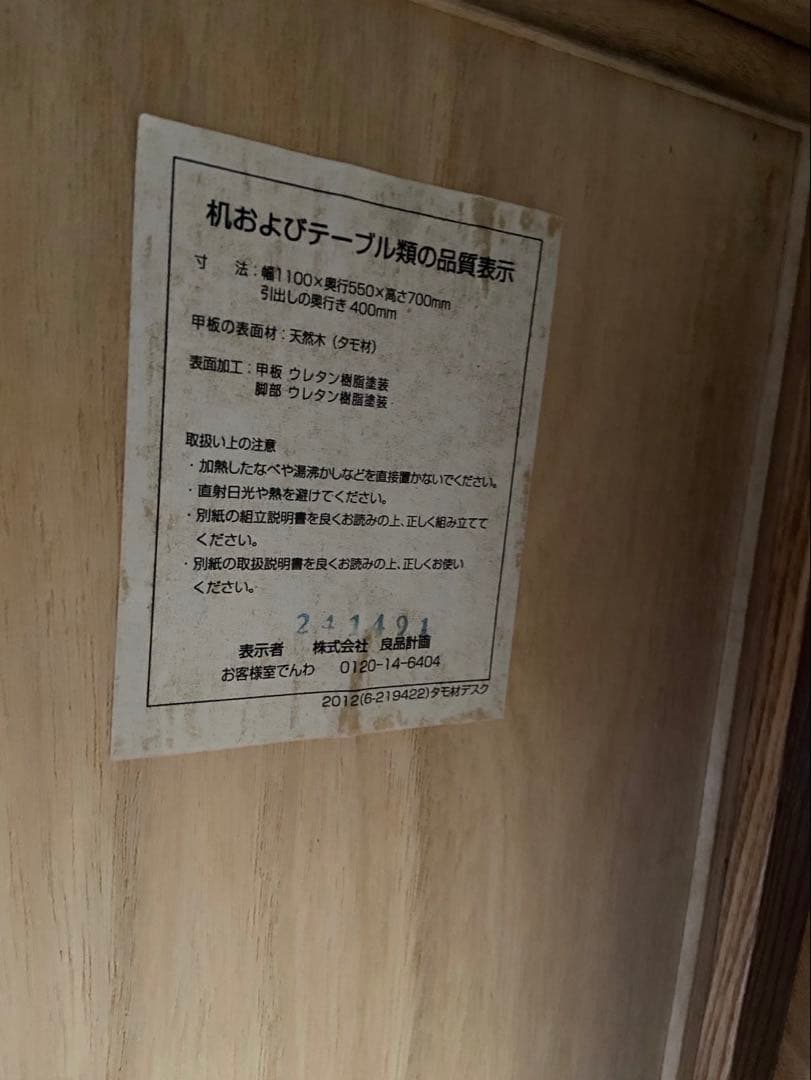 机およびテーブル類の品質表示
寸 法：幅1100×奥行550×高さ700mm
引出しの奥行き 400mm
甲板の表面材：天然木（タモ材）
表面加工：甲板 ウレタン樹脂塗装
脚部 ウレタン樹脂塗装
取扱い上の注意
・加熱したなべや湯沸かしなどを直接置かないでください。
・直射日光や熱を避けてください。
・別紙の組立説明書を良くお読みの上、正しく組み立てて
ください。
・別紙の取扱説明書を良くお読みの上、正しくお使い
ください。
表示者 株式会社 良品計画
お客様室でんわ 0120-14-6404
2012(6-219422)タモ材デスク